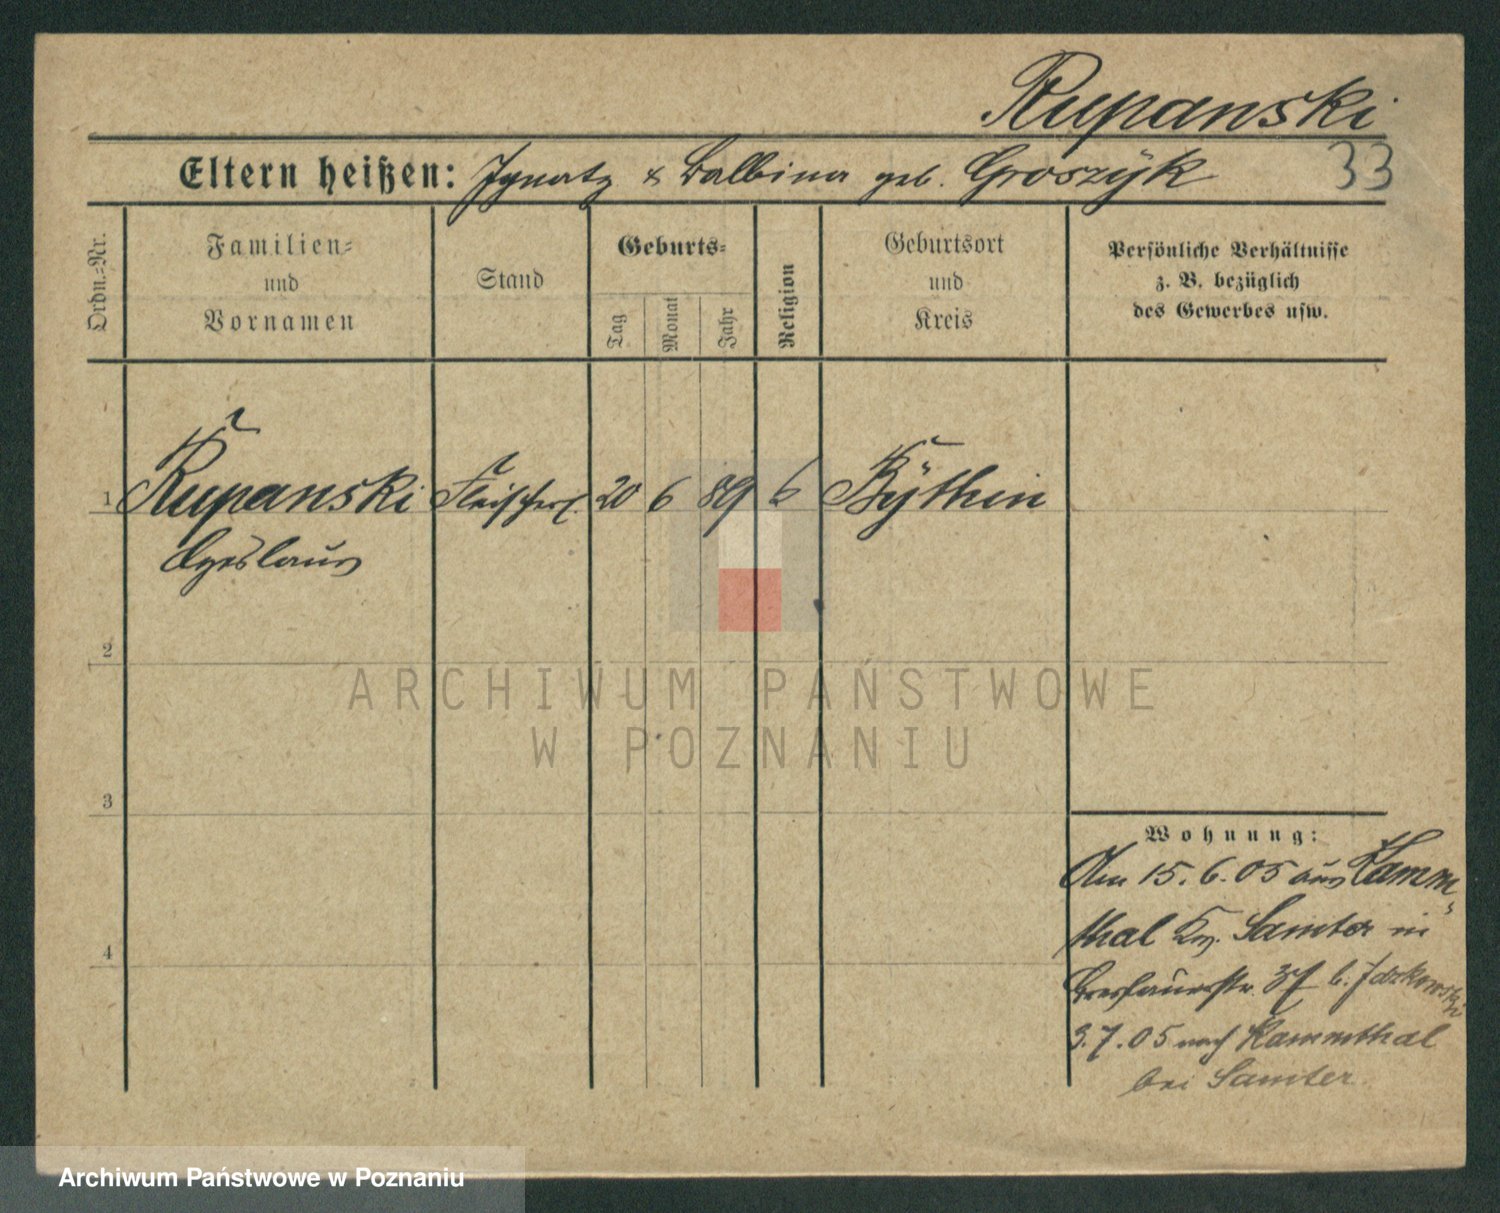 Rupanski
33
Eltern heißen: Ignatz & Balbina geb. Groszÿk
Ordn.-Nr.
Familien-
und
Vornamen
Stand
Geburts-
Tag
Monat
Jahr
Religion
Geburtsort
und
Kreis
Persönliche Verhältnisse
z. B. bezüglich
des Gewerbes usw.
1 Rupanski Fleischerl. 20 6 89 Bÿthin
2
ARCHIWUM PAŃSTWOWE
W POZNANIU
3
4
Wohnung:
Am 15.6.05 aus Kamm-
thal Kr. Samter in
Breslauerstr. 37 b. Jdzkowski
3.7.05 nach Kammthal
bei Samter
Archiwum Państwowe w Poznaniu